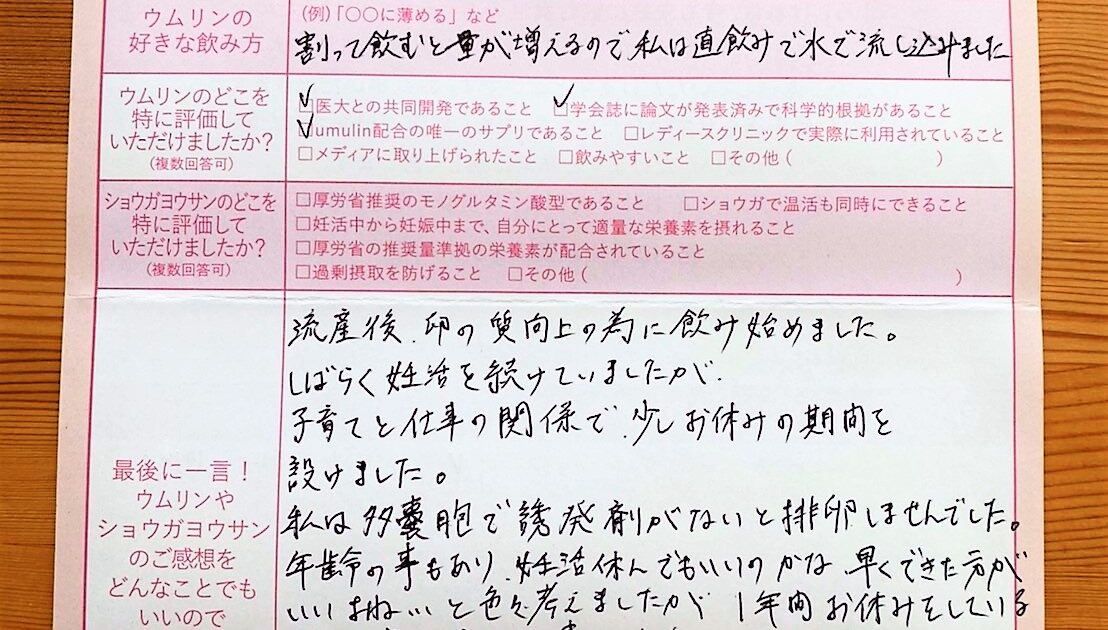 ウムリンの
好きな飲み方
(例)「〇〇に薄める」など
割って飲むと量が増えるので私は直飲みで水で流し込みました
ウムリンのどこを
特に評価して
いただけましたか?
(複数回答可)
□医大との共同開発であること □学会誌に論文が発表済みで科学的根拠があること
□umulin配合の唯一のサプリであること □レディースクリニックで実際に利用されていること
□メディアに取り上げられたこと □飲みやすいこと □その他( )
ショウガヨウサンのどこを
特に評価して
いただけましたか?
(複数回答可)
□厚労省推奨のモノグルタミン酸型であること □ショウガで温活も同時にできること
□妊活中から妊娠中まで、自分にとって適量な栄養素を摂れること
□厚労省の推奨量準拠の栄養素が配合されていること
□過剰摂取を防げること □その他( )
最後に一言!
ウムリンや
ショウガヨウサン
のご感想を
どんなことでも
いいので
流産後、卵の質向上の為に飲み始めました。
しばらく妊活を続けていましたが、
子育てと仕事の関係で、少しお休みの期間を
設けました。
私は多嚢胞で誘発剤がないと排卵しませんでした。
年齢の事もあり、妊活休んでもいいのかな、早くできた方が
いいよね…と色々考えましたが1年間お休みをしている